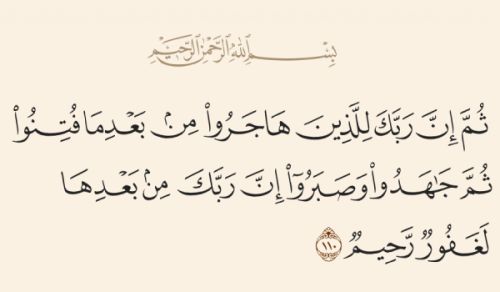 بِسْمِ اللَّهِ الرَّحْمَٰنِ الرَّحِيمِ
ثُمَّ إِنَّ رَبَّكَ لِلَّذِينَ هَاجَرُوا۟ مِنۢ بَعْدِ مَا فُتِنُوا۟
ثُمَّ جَٰهَدُوا۟ وَصَبَرُوٓا۟ إِنَّ رَبَّكَ مِنۢ بَعْدِهَا
لَغَفُورٌ رَّحِيمٌ ١١٠